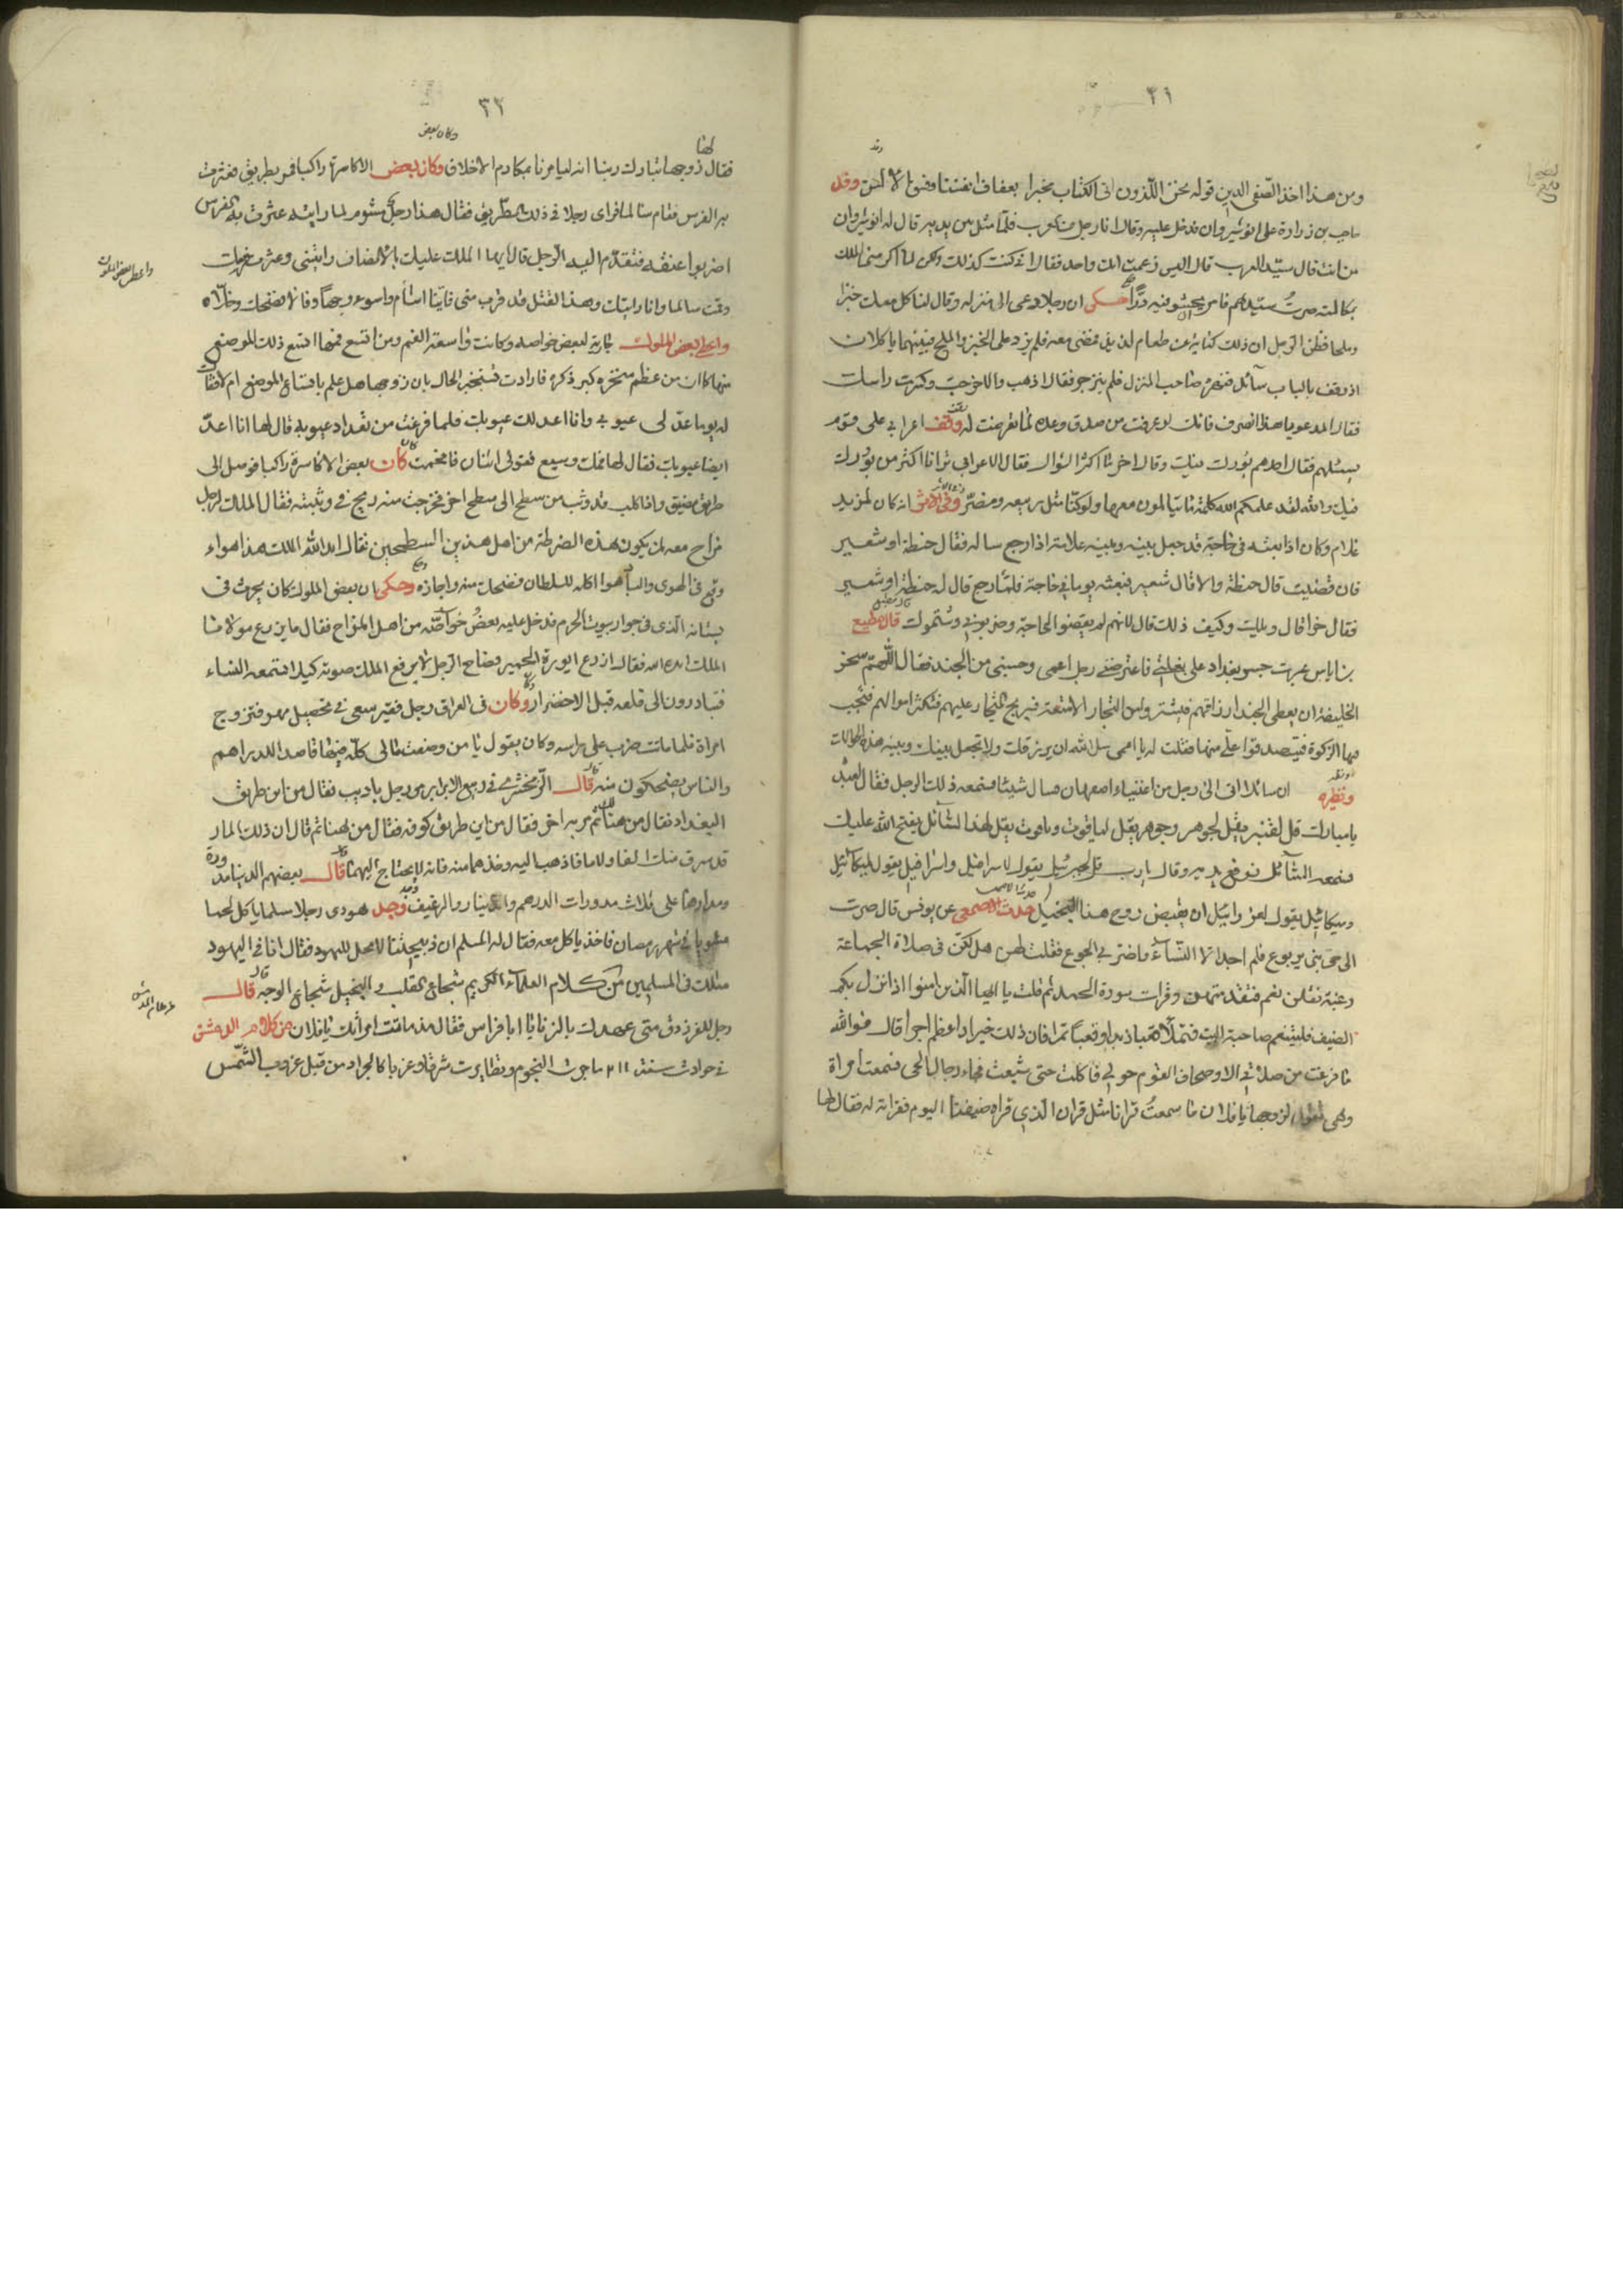 ٣١
ومن هذا اخذ الصفى الدين قوله نحن اللذون اتى الكتاب مخبرا بعفاف انفسنا وفسق الالسن وفد
حاجب بن زرارة على انوشيروان فدخل عليه وقال انا رجل من العرب فلما مثل بين يديه قال له انوشيروان
من انت قال سيد العرب قال اليس زعمت انك واحد فقال انى كنت كذلك ولكن لما اكرمنى الملك
بمكالمته صرت سيدهم فامر بحشو فيه درا حكى ان رجلا دعى الى منزله وقال لنا كل معك خبزا
وملحا فظن الرجل ان ذلك كناية عن طعام لذيذ فمضى معه فلم يزد على الخبز والملح فبينهما ياكلان
اذ وقف بالباب سائل فنهره صاحب المنزل فلم ينزجر فقال اذهب والا خرجت وكسرت راسك
فقال المدعو يا هذا انصرف فانك لو عرفت من صدق وعده ما تعرضت له وقف اعرابى على قوم
يسئلهم فقال احدهم بورك فيك وقال اخر ما اكثر السؤال فقال الاعرابى ترانا اكثر من بورك
فيك والله لقد علمكم الله كلمة ما تبالون معها ولو كنا مثل ربيعة ومضر وفى الاثر انه كان لمزيد
غلام وكان اذا بعثه فى حاجة قد جعل بينه وبينه علامة اذا رجع ساله فقال حنطة او شعير
فان قضيت قال حنطة والا قال شعير فبعثه يوما فى حاجة فلما رجع قال له حنطة او شعير
فقال خرا قال ويلك وكيف ذلك قال لانهم لم يقضوا الحاجة وضربونى وشتموك قال مطيع
بن اياس عبرت جسر بغداد على بغلتى فاعترضنى رجل اعمى وحسبنى من الجند فقال اللهم سخر
الخليفة ان يعطى الجند ارزاقهم فيشتروا من التجار الامتعة فيربح التجار عليهم فتكثر اموالهم فتجب
فيها الزكوة فيتصدقوا على منها فقلت له يا اعمى سل الله ان يرزقك ولا تجعل بينك وبينه هذه الحوالات
ونظيره ان سائلا اتى الى رجل من اغنياء اصفهان فسال شيئا فسمعه ذلك الرجل فقال لعبده
يا مبارك قل لقنبر يقل لجوهر وجوهر يقل لياقوت وياقوت يقل لهذا السائل يفتح الله عليك
فسمعه السائل فرفع يديه وقال يا رب قل لجبرئيل يقول لاسرافيل واسرافيل يقول لميكائيل
وميكائيل يقول لعزرائيل ان يقبض روح هذا البخيل حدث الاصمعى عن يونس قال صرت
الى حى بنى يربوع فلم اجد الا النساء واضر بى الجوع فقلت لهن هل لكن فى صلاة الجماعة
رغبة فقلن نعم فتقدمتهن وقرات سورة الحمد ثم قلت يا ايها الذين امنوا اذا نزل بكم
الضيف فليقم صاحبة البيت فتملا قعبا زبدا وقعبا تمرا فان ذلك خير واعظم اجرا قال فوالله
ما فرغت من صلاتى الا وصحاف القوم حولى فاكلت حتى شبعت فجاء رجال الحى فسمعت امراة
وهى تقول لزوجها يا فلان ما سمعت قرانا مثل قران الذى قراه ضيفنا اليوم فقراته له فقال لها
٣٢
وكان بعض
فقال زوجها تبارك ربنا انه ليامرنا بمكارم الاخلاق وكان بعض الاكاسرة راكبا فمر بطريق فعثرت
به الفرس فقام سالما فراى رجلا فى ذلك الطريق فقال هذا رجل مشوم لما رايته عثرت به الفرس
اضربوا عنقه فتقدم اليه الرجل قال ايها الملك عليك بالانصاف رايتنى وعثرت فرسك
وقمت سالما وانا رايتك وهذا القتل قد قرب منى فاينا اشام واسوء وجها وفالا فضحك وخلاه
واعطى بعض الملوك جارية لبعض خواصه وكانت واسعة الفم ومن اتسع فمها اتسع ذلك الموضع
منها كما ان من عظم منخره كبر ذكره فارادت تستخبر الحال بان زوجها هل علم باتساع الموضع ام لا فقالت
له يوما عد لى عيوبى وانا اعد لك عيوبك فلما فرغت من تعداد عيوبه قال لها انا اعد
ايضا عيوبك فقال لها فمك وسيع فقولى اثنان فافحمت كان بعض الاكاسرة راكبا فوصل الى
طريق مضيق واذا كلب قد وثب من سطح الى سطح اخر فخرجت منه ريح فى وثبته فقال الملك لرجل
مزاح معه لمن يكون هذه الضرطة من اهل هذين السطحين فقال ايد الله الملك هذا هواء
وقع فى الهوى والباهوا كله للسلطان فضحك منه واجازه وحكى ان بعض الملوك كان يحرث فى
بستانه الذى فى جوار بيوت الحرم فدخل عليه بعض خواصه من اهل المزاح فقال ما يزرع مولانا
الملك ايده الله فقال ازرع ايورة الحمير فصاح الرجل لا يرفع الملك صوته كيلا تسمعه النساء
فتبادرون الى قلعه قبل الاخضرار وكان فى العراق رجل فقير سعى فى تحصيل مهر فتزوج
امراة فلما ماتت ضرب على راسه وكان يقول يا من وضعت مالى كله فيها قاصد الدراهم
والناس يضحكون منه قال الزمخشرى فى ربيع الابرار مر رجل باديب فقال من اين طريق
البغداد فقال من هنا ثم مر به اخر فقال من اين طريق كوفه فقال من هنا ثم قال ان ذلك المار
قد سرق منك الفا ولاما فاذهب اليه وخذهما منه فانه لا يحتاج اليهما قال بعضهم الدنيا مدورة
ومدارها على ثلاث مدورات الدرهم والدينار والرغيف وجد يهودى رجلا مسلما ياكل لحما
مشويا فى شهر رمضان فاخذ ياكل معه فقال له المسلم ان ذبيحتنا لا تحل لليهود فقال انا فى اليهود
مثلك فى المسلمين من كلام العلماء الكريم شجاع القلب والبخيل شجاع الوجه قال
رجل للفرزدق متى عهدك بالزنا يا ابا فراس فقال مذ ماتت امراتك يا فلان من كلام الدمشقى
فى حوادث سنة ٢١١ ماجت النجوم وتطايرت شرقا وغربا كالجراد من قبل غروب الشمس
واعطى بعض الملوك